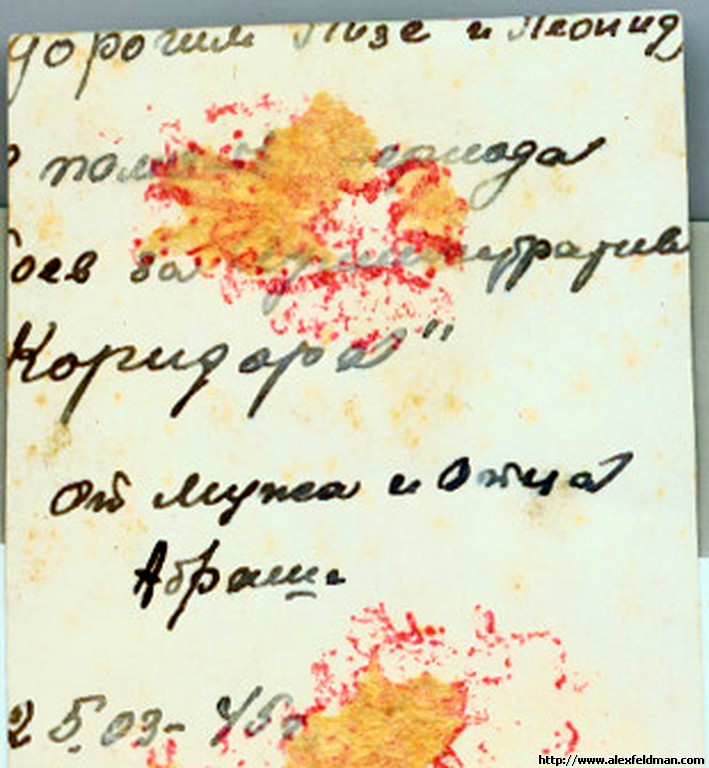 дорогим Лизе и Леонид
период
боев за
Коридора"
от мужа и отца
Абраши
25.03-45г
http://www.alexfeldman.com